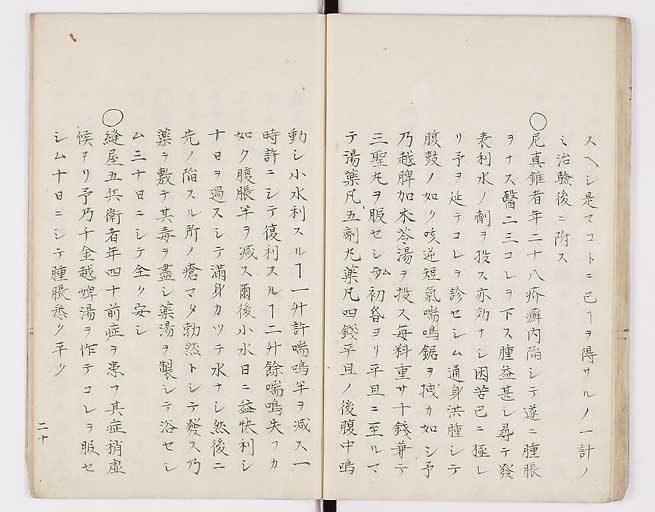 スヘシ是マコトニ已ヿヲ得サルノ一計ノ
ミ治驗後ニ附ス
○尼真錐者年二十八疥癬内陥シテ遂ニ腫脹
ヲナス醫二三コレヲ下ス腫益甚シ尋テ發
表利水ノ劑ヲ投ス亦効ナシ困苦已ニ極レ
リ予ヲ延テコレヲ診セシム通身洪腫シテ
腹鼓ノ如ク咳逆短氣喘鳴鋸ヲ拽カ如シ予
乃越脾加朮苓湯ヲ投ス毎料重サ十錢兼テ
三聖丸ヲ服セシム初昏ヨリ平旦ニ至ルマ
テ湯藥凡五劑丸藥凡四錢平旦ノ後腹中鳴
動シ小水利スルヿ一升許喘鳴半ヲ减ス一
時許ニシテ復利スルヿ二升餘喘鳴失フカ
如ク腹脹半ヲ减ス爾後小水日ニ益快利シ
十日ヲ過スシテ滿身カツテ水ナシ然後ニ
先ノ陥スル所ノ瘡マタ勃然トシテ發ス乃
藥ヲ敷テ其毒ヲ盡シ藥湯ヲ製シテ浴セシ
ム三十日ニシテ全ク安シ
○縫屋五兵衛者年四十前症ヲ患フ其症稍虚
候アリ予乃千金越婢湯ヲ作テコレヲ服セ
シム十日ニシテ腫脹悉ク平ク
二十